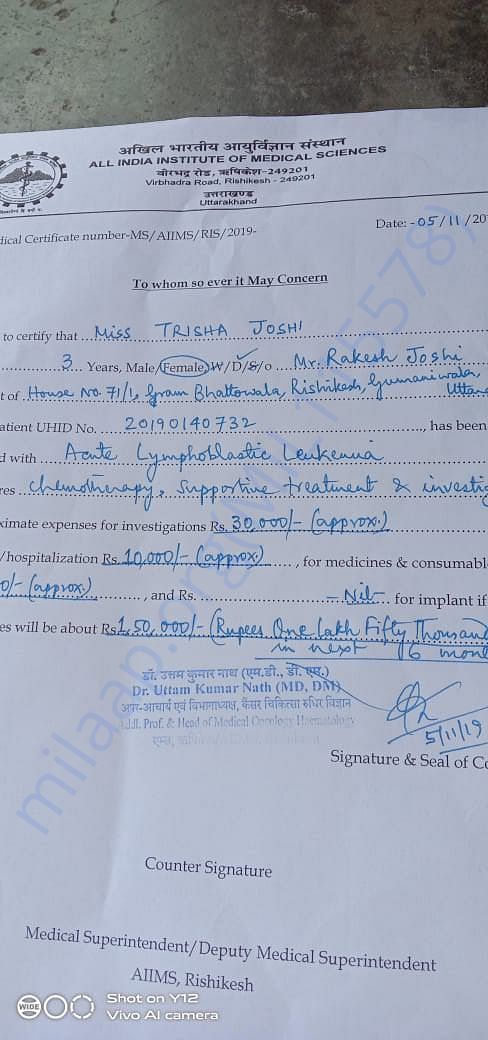 अखिल भारतीय आयुर्विज्ञान संस्थान
ALL INDIA INSTITUTE OF MEDICAL SCIENCES
वीरभद्र रोड, ऋषिकेश-249201
Virbhadra Road, Rishikesh - 249201
उत्तराखण्ड
Uttarakhand
dical Certificate number-MS/AIIMS/RIS/2019-
Date: -05/11/20
To whom so ever it May Concern
to certify that Miss TRISHA JOSHI
3 Years, Male/Female W/D/S/o Mr. Rakesh Joshi
t of House No. 71/1, Gram Bhattowala, Rishikesh, Gumaniwala,
Uttara
atient UHID No. 20190140732, has been
d with Acute Lymphoblastic Leukemia
res chemotherapy, supportive treatment & investig
ximate expenses for investigations Rs. 30,000/- (approx.)
/hospitalization Rs. 10,000/- (approx), for medicines & consumabl
0/- (approx), and Rs. -Nil- for implant if
es will be about Rs 1,50,000/- (Rupees One lakh Fifty Thousand
in next 6 mont
डॉ. उत्तम कुमार नाथ (एम.डी., डी. एम.)
Dr. Uttam Kumar Nath (MD, DM)
अपर-आचार्य एवं विभागाध्यक्ष, कैंसर चिकित्सा रुधिर विज्ञान
Addl. Prof. & Head of Medical Oncology Haematology
5/11/19
Signature & Seal of Co
Counter Signature
Medical Superintendent/Deputy Medical Superintendent
AIIMS, Rishikesh
WIDE
Shot on Y12
Vivo AI camera